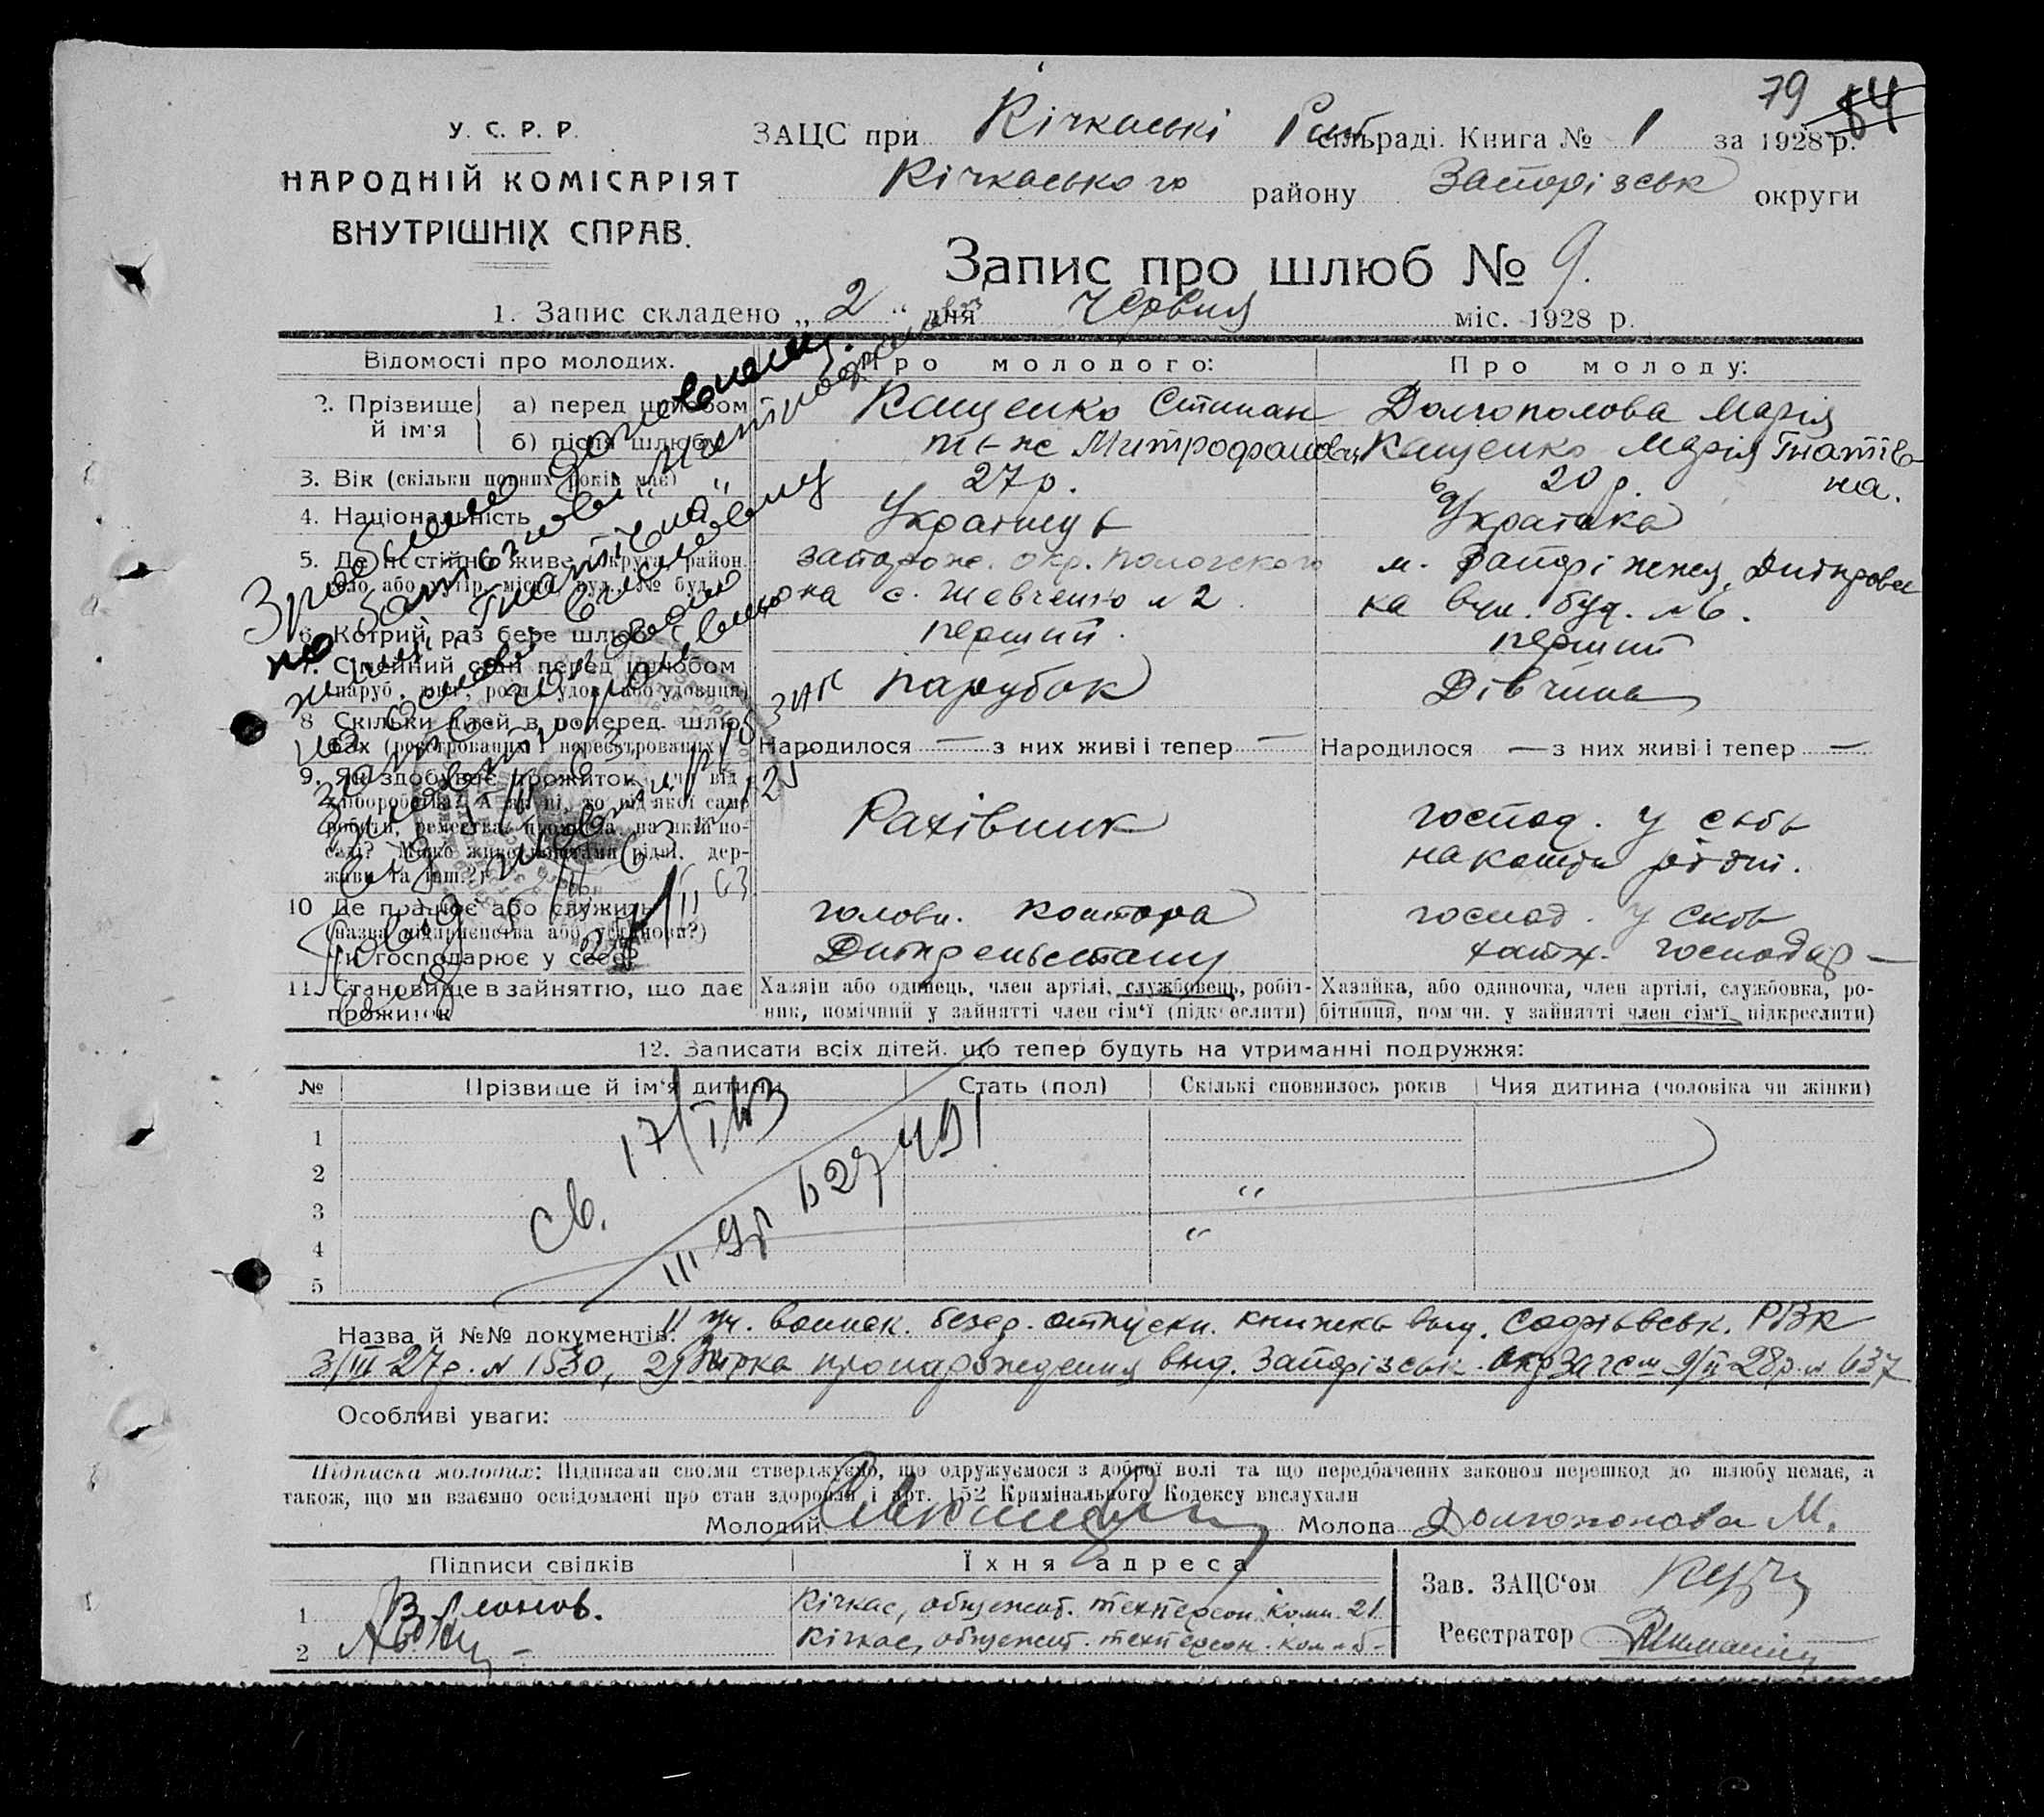 79 84
У. С. Р. Р.
НАРОДНІЙ КОМІСАРІЯТ
ВНУТРІШНІХ СПРАВ.
ЗАЦС при Кічкаські сільраді. Книга № 1 за 1928 р.
Кічкаського району Запорізськ округи
Запис про шлюб № 9.
1. Запис складено „ 2 “ дня червня міс. 1928 р.
Відомості про молодих. Про молодого: Про молоду:
2. Прізвище й ім'я а) перед шлюбом Кащенко Степан Долгополова Марія
б) після шлюбу Митрофанович Кащенко Марія Гнатів-
на.
3. Вік (скільки повних років має) 27 р. 20 р.
4. Національність Українець Українка
5. Де постійно живе (округа, район,
село, або хутір, місто, вул., № буд.)
запорож. окр. Пологского
р-она с. Шевченко № 2.
м. Запоріжжя, Дніпровс
ка вул. буд. № 6.
6. Котрий раз бере шлюб перший. перший
7. Сімейний стан перед шлюбом
(паруб., дівч., розл., удов. або удовиця)
парубок Дівчина
8 Скільки дітей в поперед. шлюбах (реєстрованих і нереєстрованих)
Народилося — з них живі і тепер — Народилося — з них живі і тепер —
9. Як здобуває прожиток, чи від
хліборобства? А як ні, то від якої саме
роботи, ремества, промисла, на якій посаді? Може живе коштами рідні, держави та інш.?)
Рахівник
господ. у себе
на кошти рідні.
10 Де працює або служить
(назва підприємства або установи?)
Чи господарює у себе?
головн. контора
Дніпрельстану
господ. у своїм
хатн. господар—
11. Становище в зайняттю, що дає
прожиток
Хазяїн або одинець, член артілі, службовець, робітник, помічний у зайнятті член сім'ї (підкреслити)
Хазяйка, або одиночка, член артілі, службовка, робітниця, помічн. у зайнятті член сім'ї підкреслити)
Зроблено доповнення
по батькові „Митрофанович“
жінці „Гнатівна“
на основі висновку
12. Записати всіх дітей, що тепер будуть на утриманні подружжя:
№ Прізвище й ім'я дитини Стать (пол) Скількі сповнилось років Чия дитина (чоловіка чи жінки)
1
2
3
4
5
св. 17/I 43
III ЯР 627491
Назва й №№ документів: 1) уч. воинск. безср. отпускн. книжка выд. Софіївськ. РВК
3/III-27 р. № 1530, 2) Вірка про народження выд. Запорізськ. ОкрЗагсом 9/II-28 р. № 637
Особливі уваги:
Підписка молодих: Підписами своїми стверджуємо, що одружуємося з доброї волі та що передбачених законом перешкод до шлюбу немає, а
також, що ми взаємно освідомлені про стан здоровля і арт. 152 Кримінального Кодексу вислухали
Молодий Молода Долгополова М.
Підписи свідків Їхня адреса Зав. ЗАЦС'ом
1 Кічкас, общежит. техперсон. комн. 21
2 Кічкас, общежит. техперсон.
Реєстратор